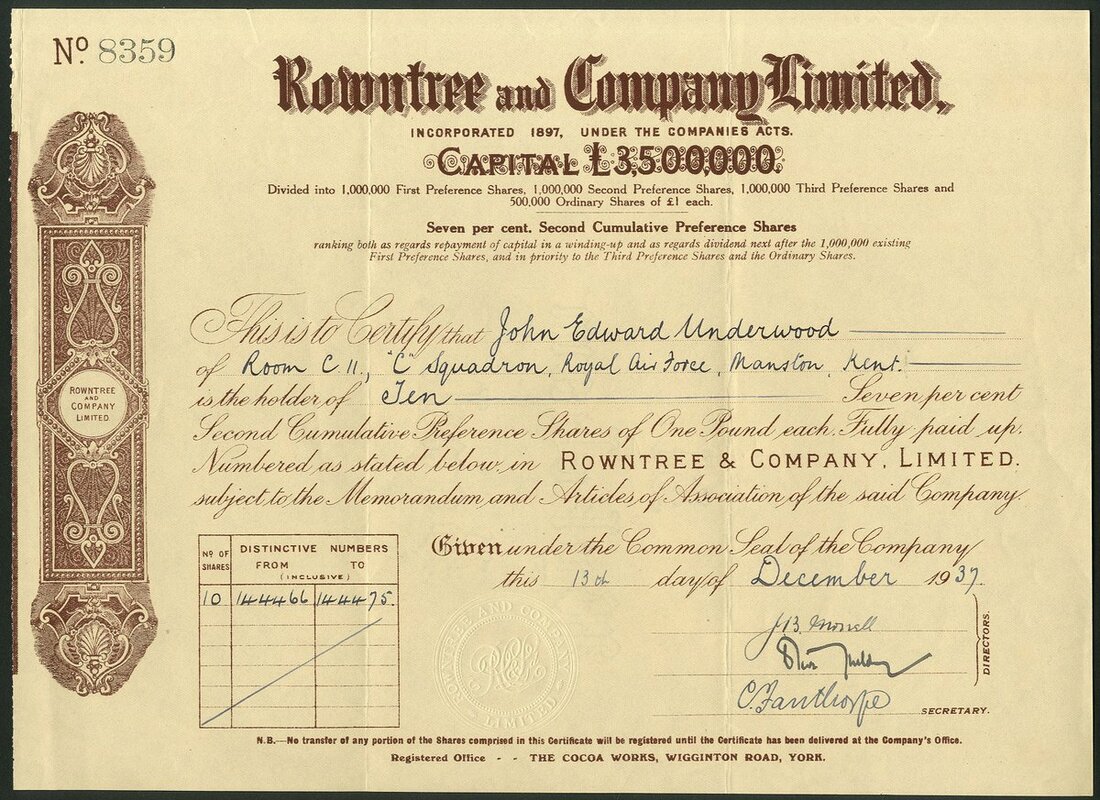 Nº 8359
Rowntree and Company Limited,
INCORPORATED 1897, UNDER THE COMPANIES ACTS.
CAPITAL £3,500,000.
Divided into 1,000,000 First Preference Shares, 1,000,000 Second Preference Shares, 1,000,000 Third Preference Shares and
500,000 Ordinary Shares of £1 each.
Seven per cent. Second Cumulative Preference Shares
ranking both as regards repayment of capital in a winding-up and as regards dividend next after the 1,000,000 existing
First Preference Shares, and in priority to the Third Preference Shares and the Ordinary Shares.
This is to Certify that John Edward Underwood
of Room C 11., "C" Squadron, Royal Air Force, Manston, Kent.
is the holder of Ten Seven per cent
Second Cumulative Preference Shares of One Pound each. Fully paid up.
Numbered as stated below, in ROWNTREE & COMPANY, LIMITED.
subject to the Memorandum and Articles of Association of the said Company
ROWNTREE
AND
COMPANY
LIMITED.
Given under the Common Seal of the Company
this 13th day of December 1937.
Nº OF SHARES
DISTINCTIVE NUMBERS
FROM (INCLUSIVE) TO
10 144466 144475.
ROWNTREE AND COMPANY LIMITED
R&Co
DIRECTORS.
C. Fanthorpe
SECRETARY.
N.B.—No transfer of any portion of the Shares comprised in this Certificate will be registered until the Certificate has been delivered at the Company's Office.
Registered Office - - THE COCOA WORKS, WIGGINTON ROAD, YORK.